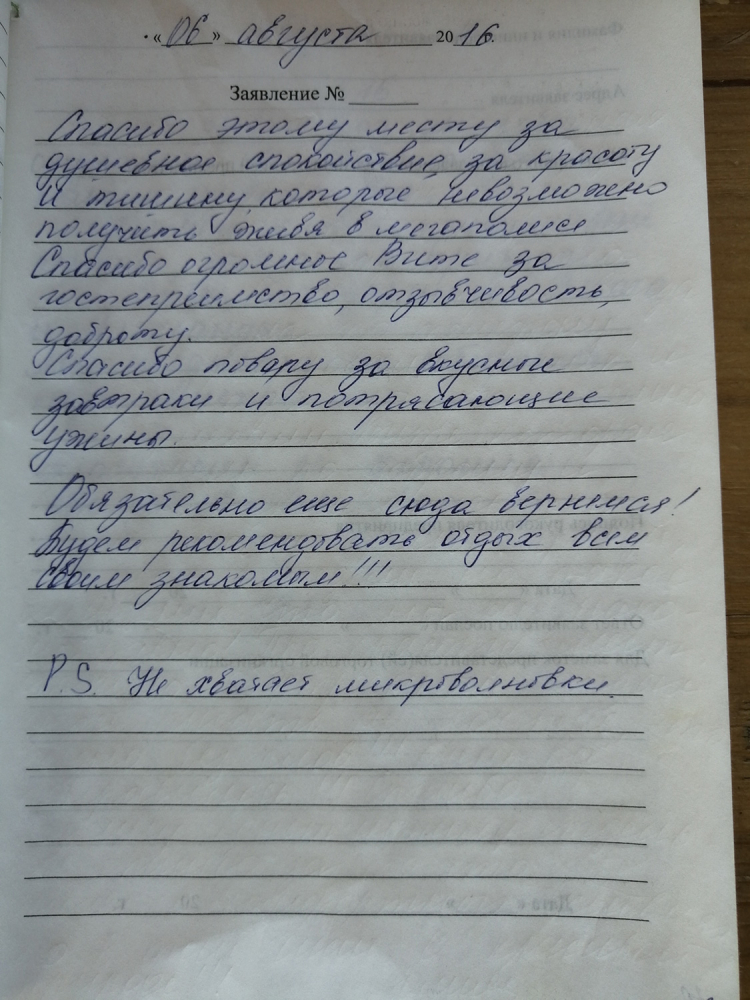 «06» августа 2016.
Заявление №
Спасибо этому месту за
душевное спокойствие, за красоту
и тишину которые невозможно
получить живя в мегаполисе
Спасибо огромное Вите за
гостеприимство, отзывчивость,
доброту.
Спасибо повару за вкусные
завтраки и потрясающие
ужины.
Обязательно еще сюда вернемся!
Будем рекомендовать отдых всем
своим знакомым!!!
P.S. Не хватает микроволновки.